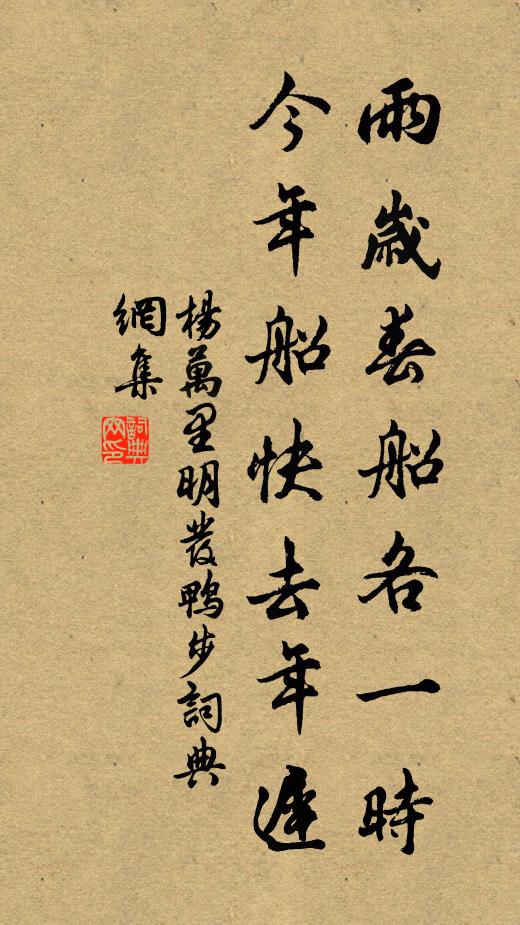 兩歲春船各一時
今年船快去年遲
楊萬里明發鴨步詞典
網集
詞典
网印